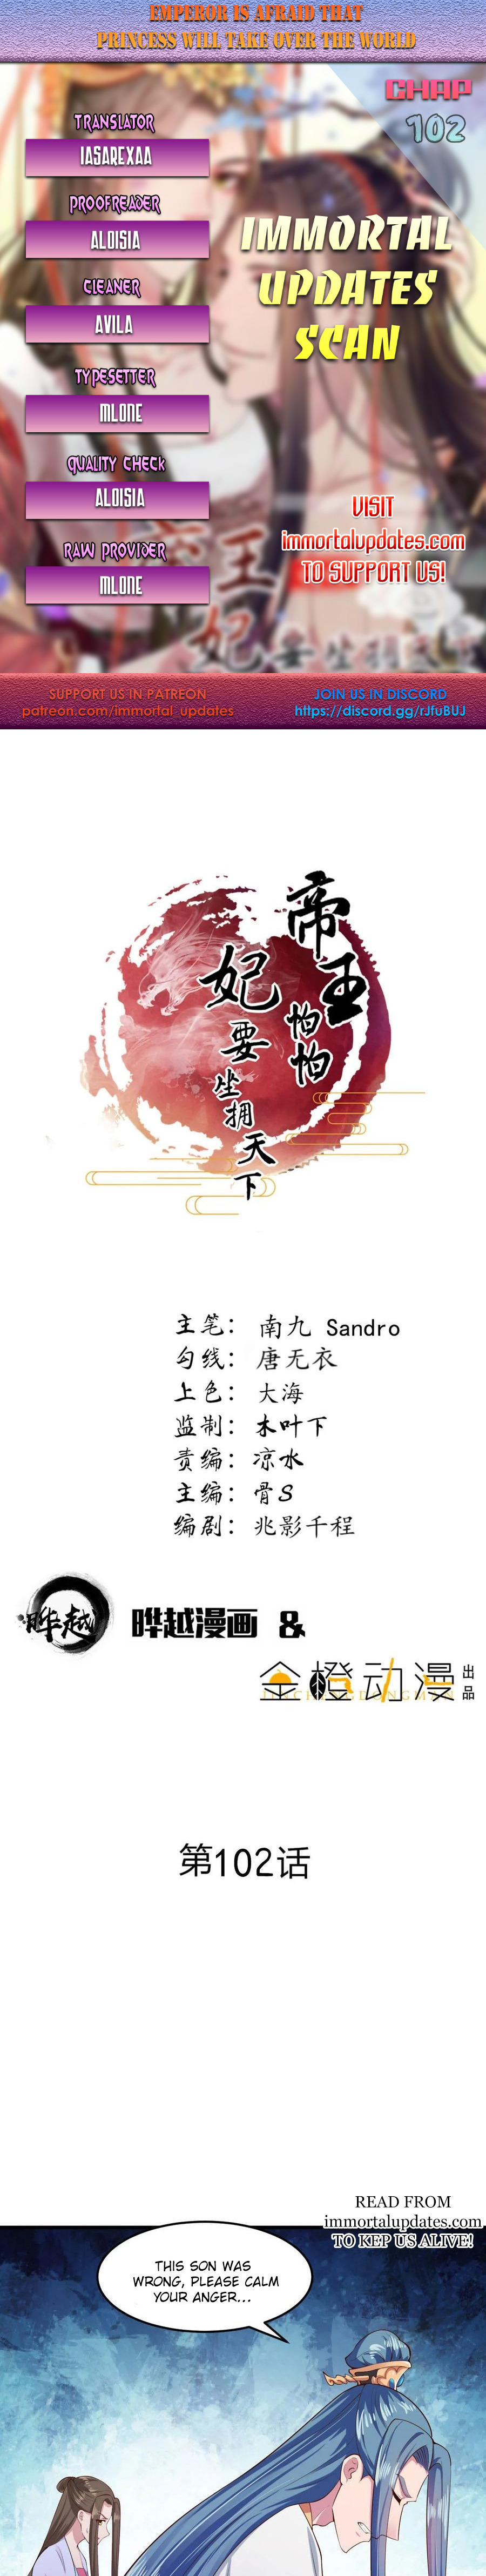 EMPEROR IS AFRAID THAT
PRINCESS WILL TAKE OVER THE WORLD
CHAP
102
TRANSLATOR
IASAREXAA
PROOFREADER
ALOISIA
CLEANER
AVILA
TYPESETTER
MLONE
QUALITY CHECK
ALOISIA
RAW PROVIDER
MLONE
IMMORTAL
UPDATES
SCAN
VISIT
immortalupdates.com
TO SUPPORT US!
SUPPORT US IN PATREON
patreon.com/immortal-updates
JOIN US IN DISCORD
https://discord.gg/rJfuBUJ
帝王怕怕
妃要坐拥天下
主笔: 南九 Sandro
勾线: 唐无衣
上色: 大海
监制: 木叶下
责编: 凉水
主编: 骨S
编剧: 兆影千程
晔越
晔越漫画 &
金橙动漫 出品
第102话
READ FROM
immortalupdates.com
TO KEP US ALIVE!
THIS SON WAS
WRONG, PLEASE CALM
YOUR ANGER...